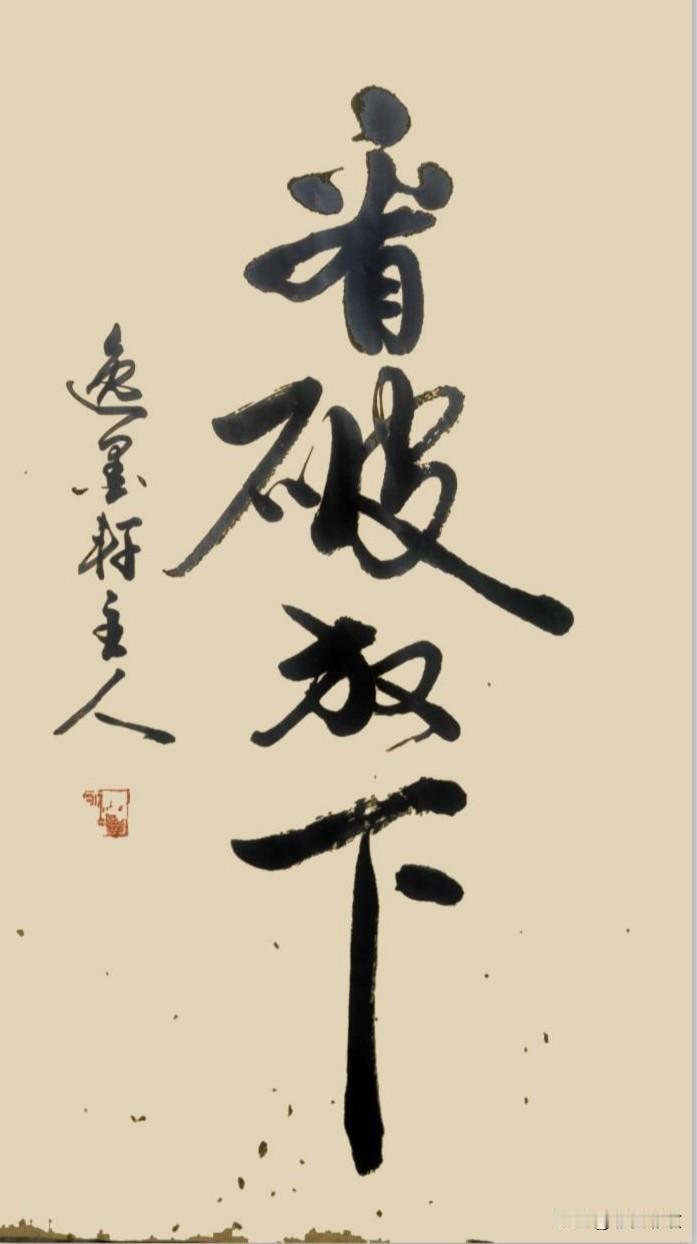 看破放下
逸墨轩主人